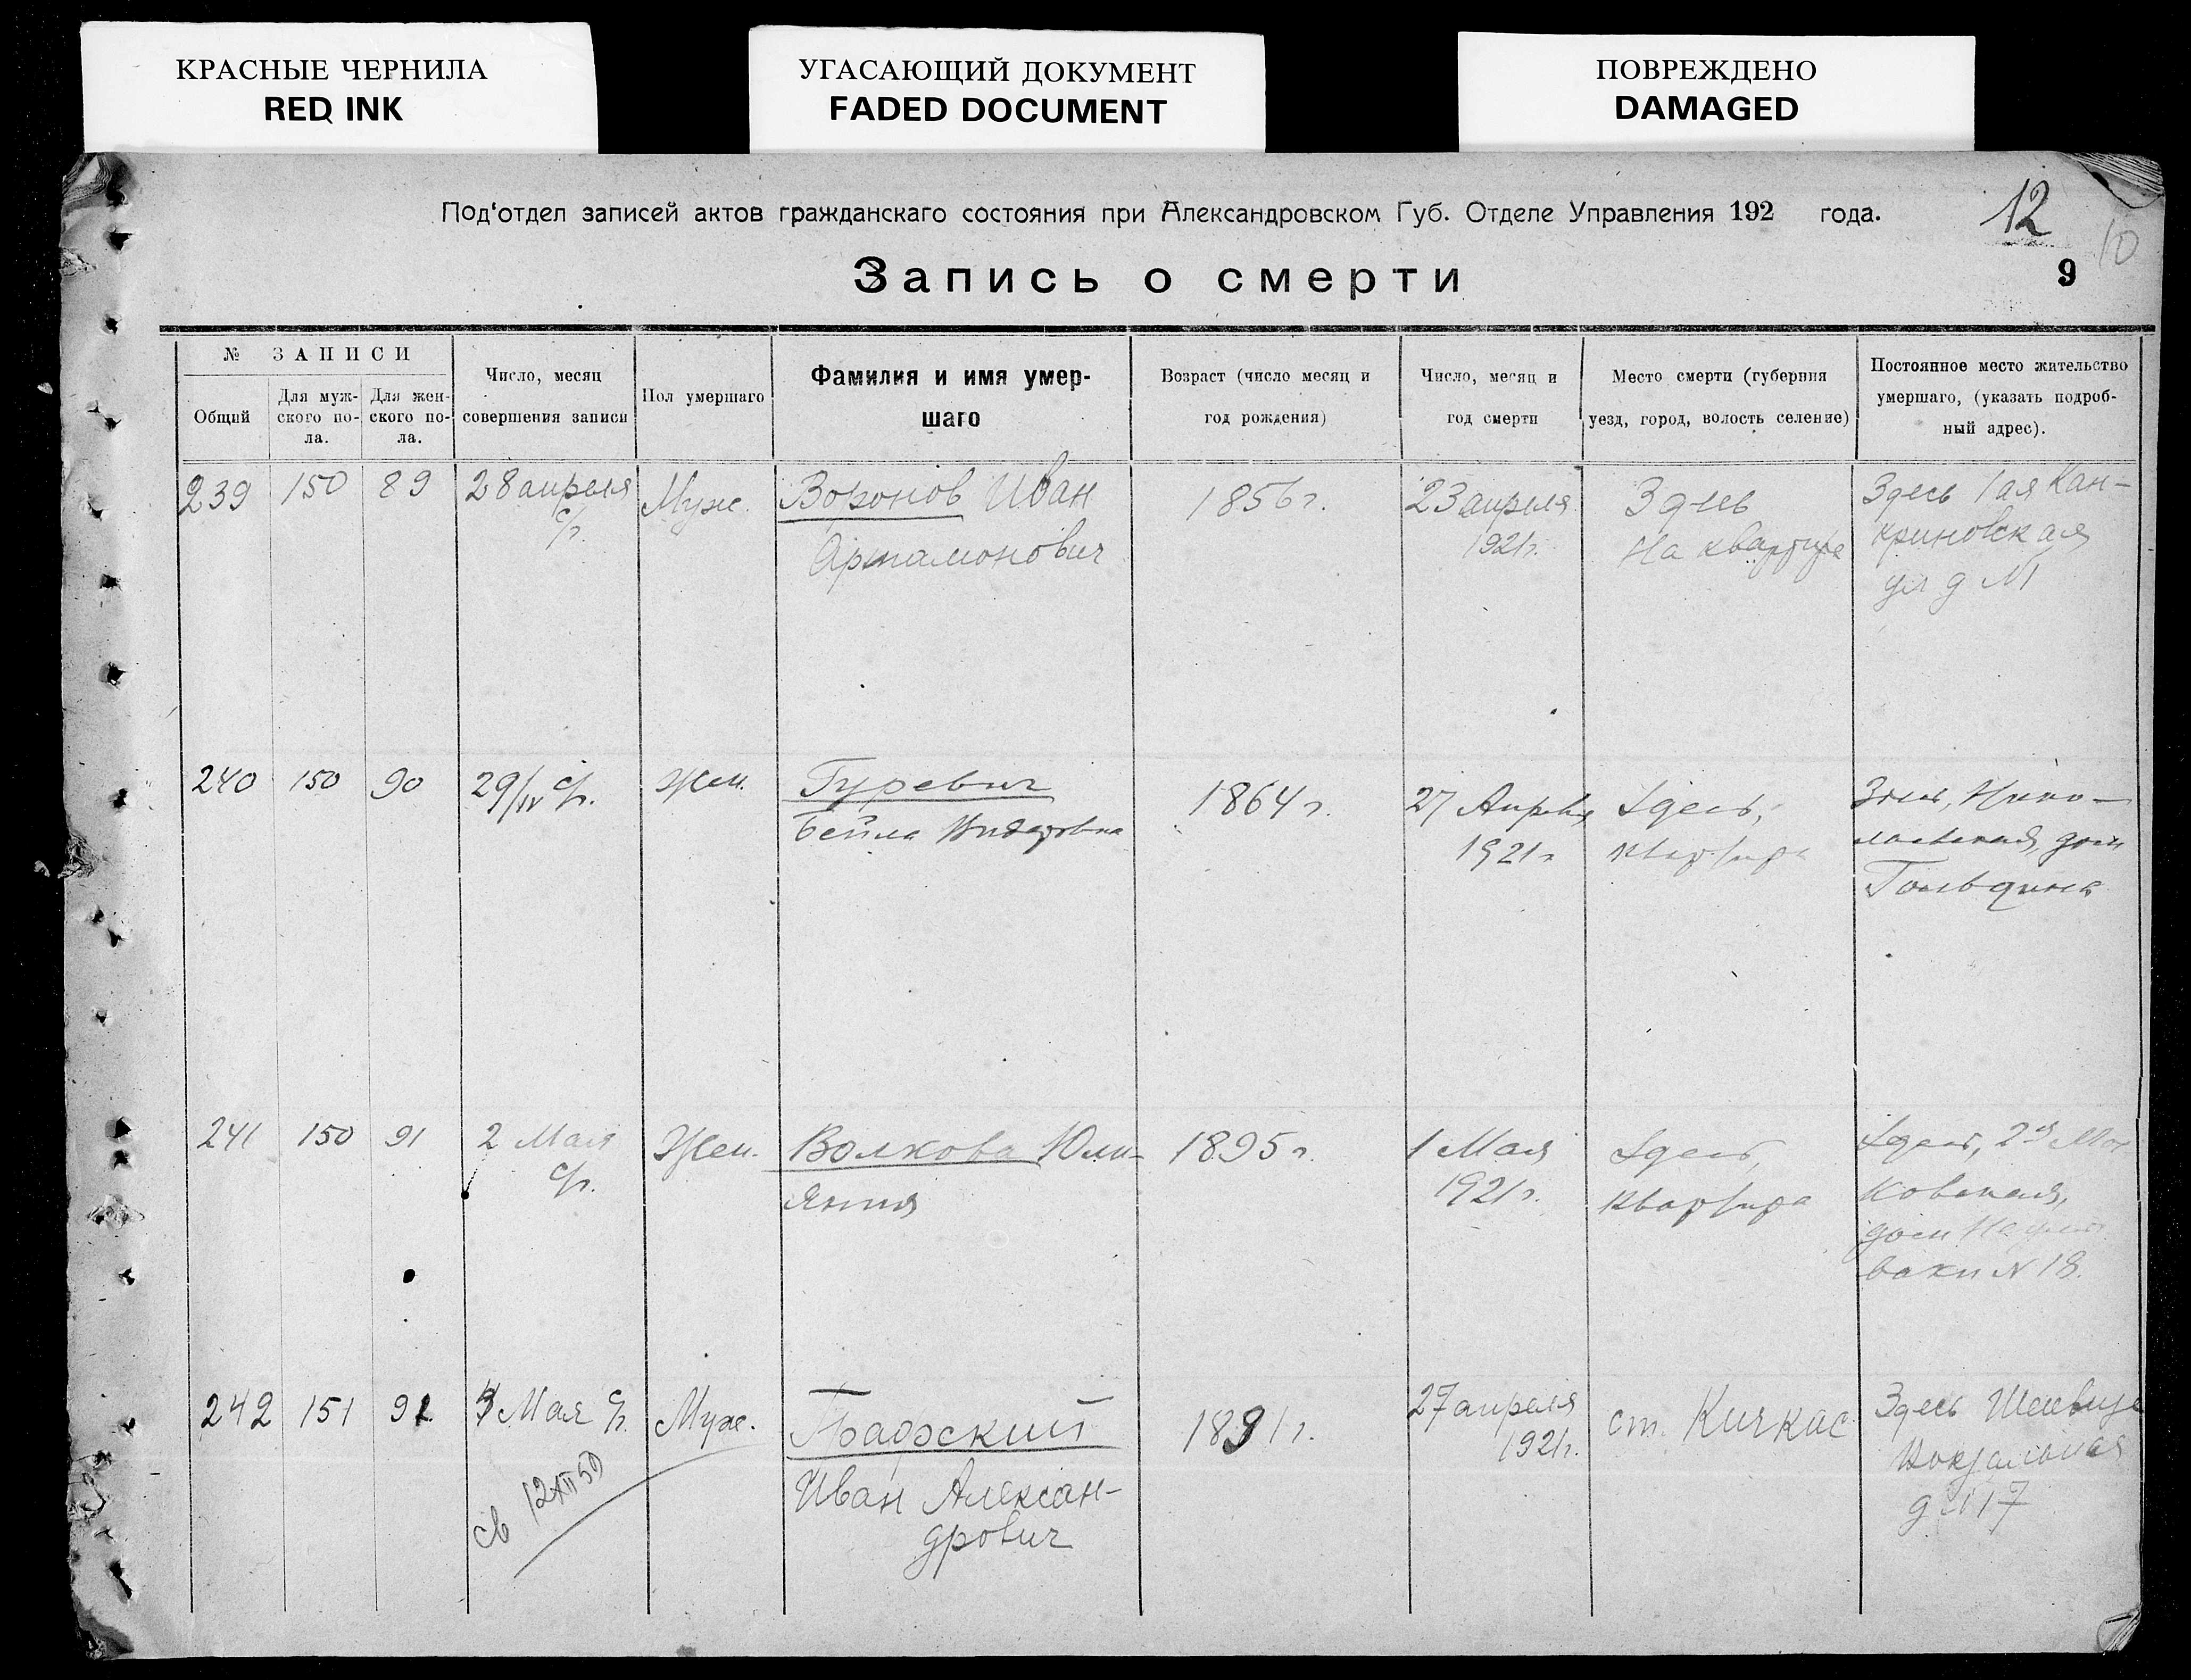 КРАСНЫЕ ЧЕРНИЛА
RED INK
УГАСАЮЩИЙ ДОКУМЕНТ
FADED DOCUMENT
ПОВРЕЖДЕНО
DAMAGED
Под'отдел записей актов гражданскаго состояния при Александровском Губ. Отделе Управления 192 года.
12
10
9
Запись о смерти
№ ЗАПИСИ
Общий
Для муж-
ского по-
ла.
Для жен-
ского по-
ла.
Число, месяц
совершения записи
Пол умершаго
Фамилия и имя умер-
шаго
Возраст (число месяц и
год рождения)
Число, месяц и
год смерти
Место смерти (губерния
уезд, город, волость селение)
Постоянное место жительство
умершаго, (указать подроб-
ный адрес).
239
150
89
28 апреля
с/г.
Муж.
Воронов Иван
Артамонович
1856 г.
23 апреля
1921 г.
Здесь
на квартире
Здесь 1ая Кан-
криновская
ул д №1
240
150
90
29/IV с/г.
Жен.
Гуревич
Бейла
1864 г.
27 Апреля
1921 г
Здесь,
квартира
Здесь, Нико-
лаевская, дом
241
150
91
2 Мая
с/г.
Жен.
Волкова Юли-
яния
1895 г.
1 Мая
1921 г.
Здесь,
квартира
Здесь, 2я Мос
ковская,
дом
ваки № 18.
242
151
92
Мая с/г.
св 12 XII 50
Муж.
Иван Алексан-
дрович
1891 г.
27 апреля
1921 г.
ст. Кичкас
Здесь
Вокзальная
д № 17